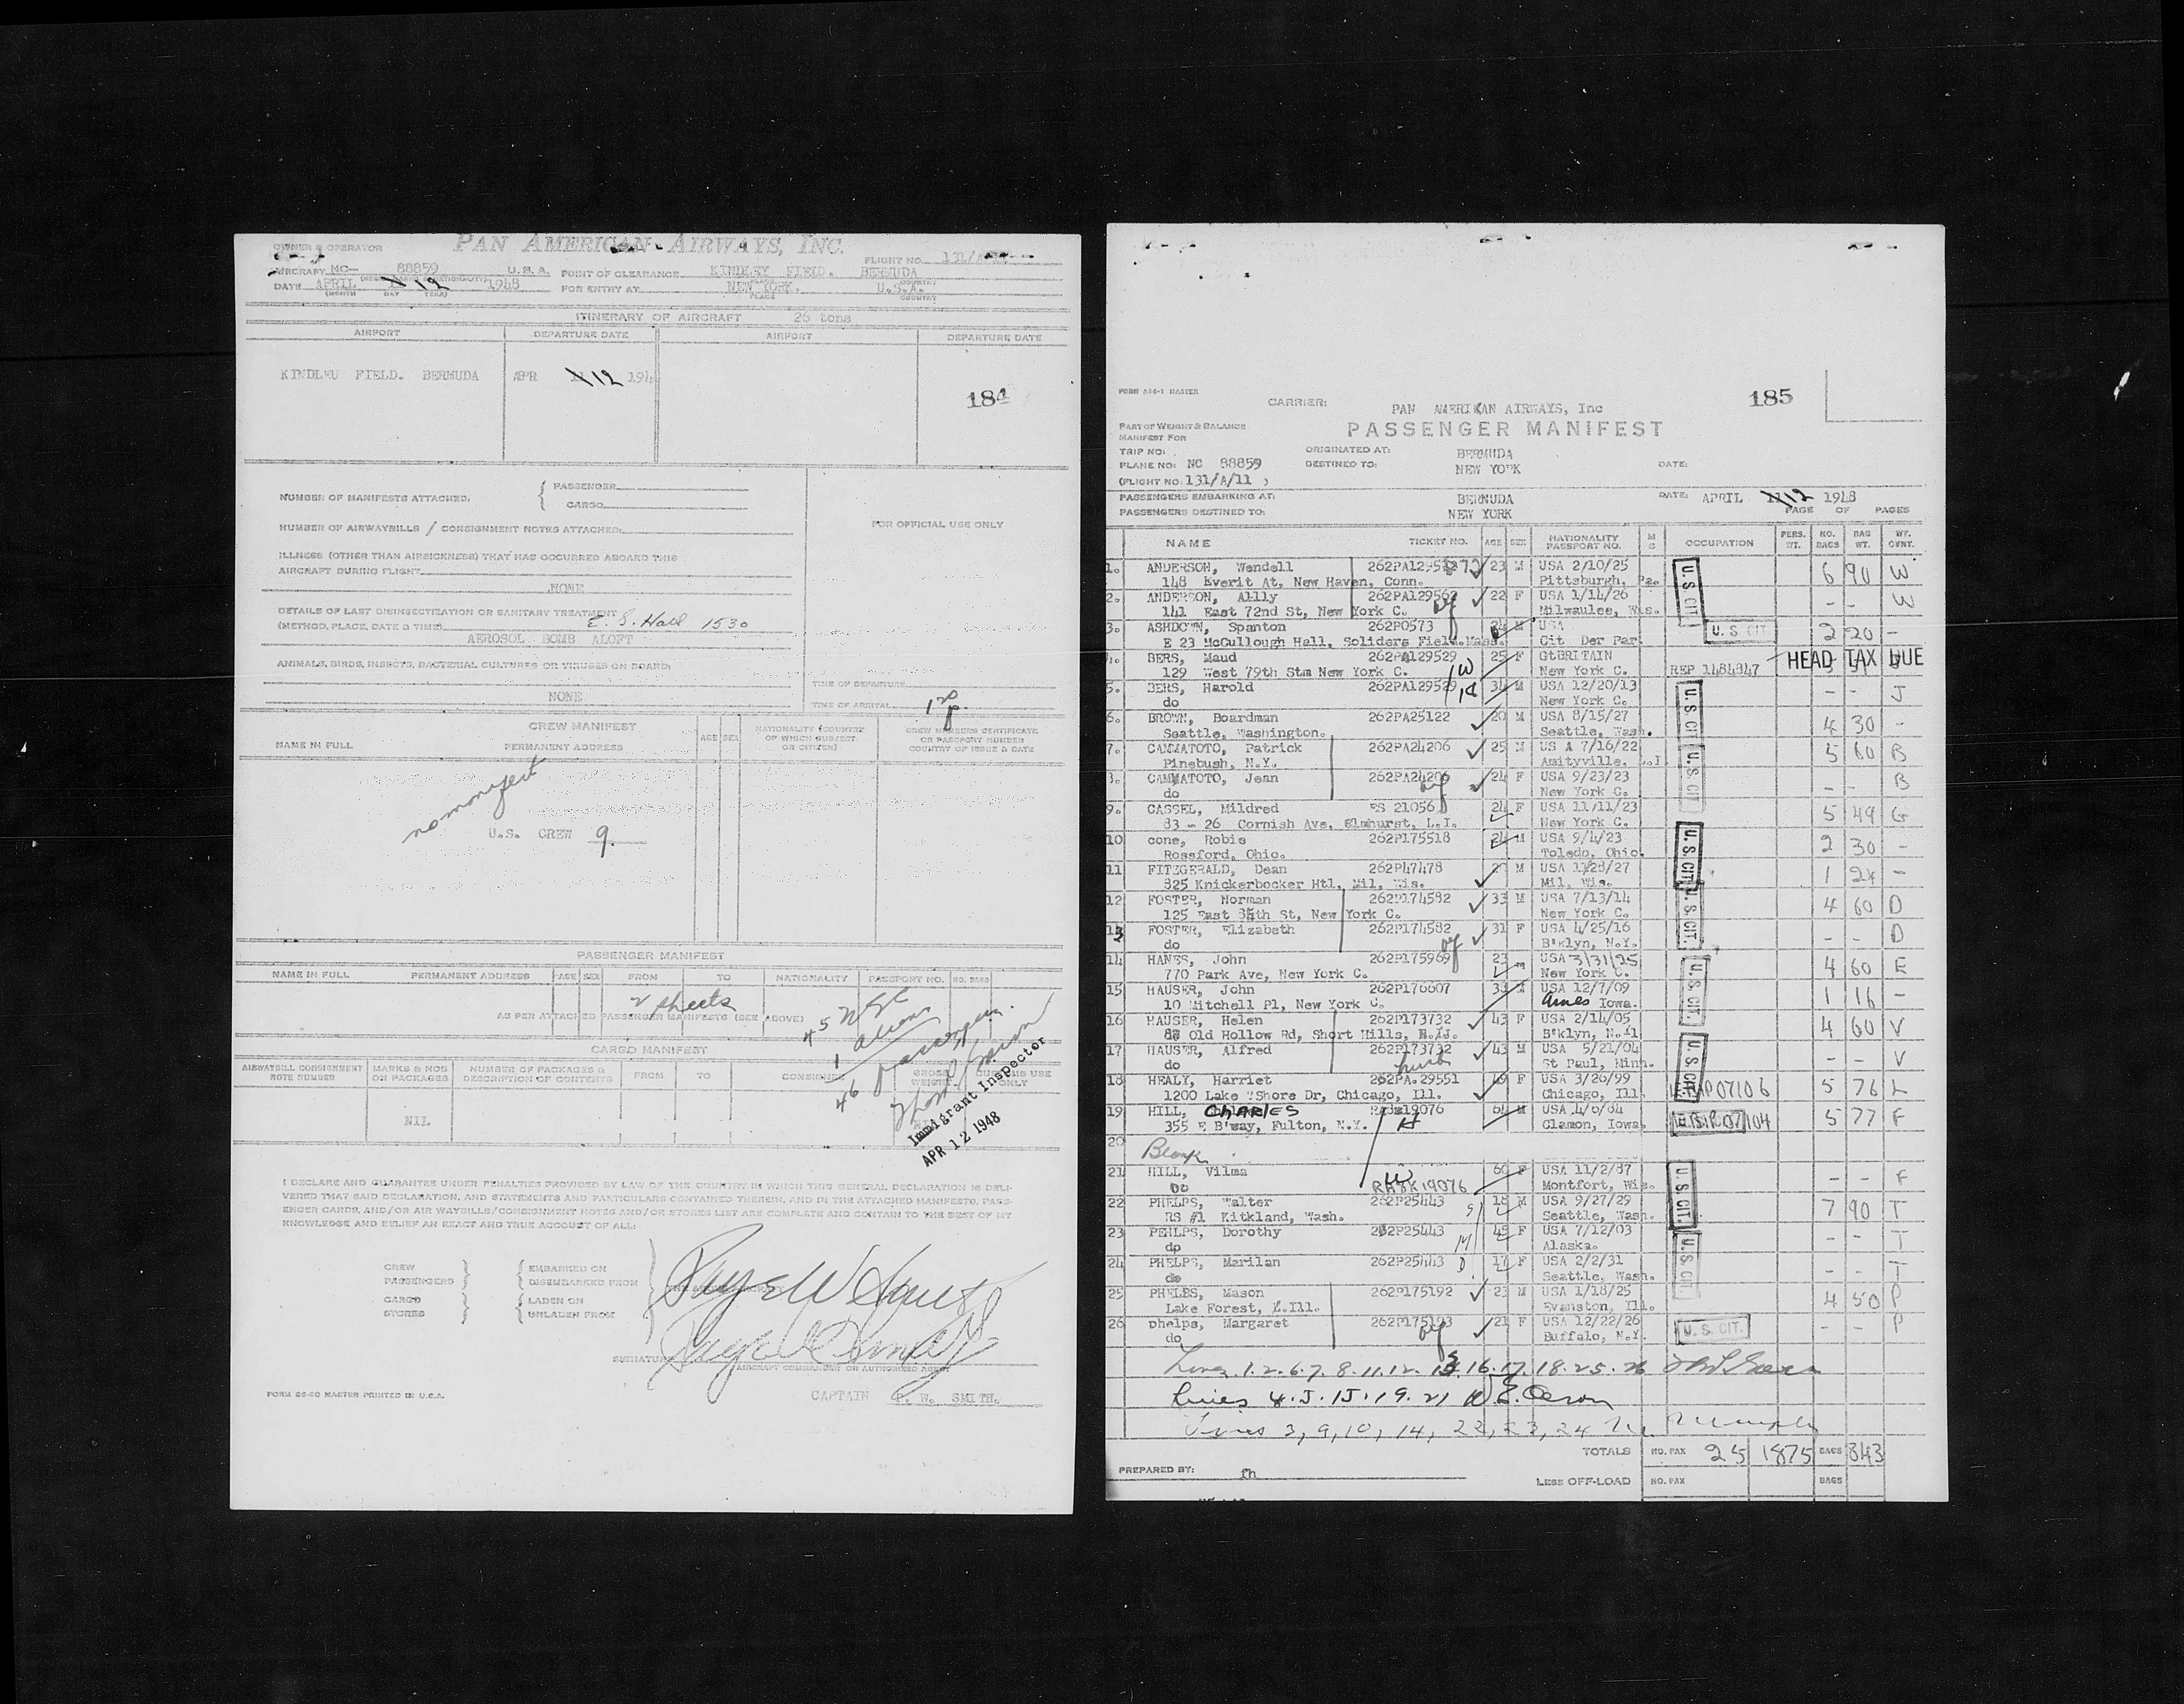 OWNER & OPERATOR PAN AMERICAN AIRWAYS, INC.
FLIGHT NO. 131/
AIRCRAFT NC- 88859 U.S.A. POINT OF CLEARANCE KINDLEY FIELD. BERMUDA
DATE APRIL 12 1948 FOR ENTRY AT NEW YORK. U.S.A.
(MONTH DAY YEAR) PLACE COUNTRY
ITINERARY OF AIRCRAFT 26 tons
AIRPORT DEPARTURE DATE AIRPORT DEPARTURE DATE
KINDLEU FIELD. BERMUDA APR 12 194
184
NUMBER OF MANIFESTS ATTACHED: PASSENGER
CARGO
NUMBER OF AIRWAYBILLS / CONSIGNMENT NOTES ATTACHED:
FOR OFFICIAL USE ONLY
ILLNESS (OTHER THAN AIRSICKNESS) THAT HAS OCCURRED ABOARD THIS
AIRCRAFT DURING FLIGHT
NONE
DETAILS OF LAST DISINSECTIZATION OR SANITARY TREATMENT
(METHOD, PLACE, DATE & TIME) E. S. Hall 1530
AEROSOL BOMB ALOFT
ANIMALS, BIRDS, INSECTS, BACTERIAL CULTURES OR VIRUSES ON BOARD:
NONE
TIME OF DEPARTURE
TIME OF ARRIVAL 120 P
CREW MANIFEST
NAME IN FULL PERMANENT ADDRESS AGE SEX NATIONALITY (COUNTRY OF WHICH SUBJECT OR CITIZEN) CREW MEMBERS CERTIFICATE OR PASSPORT NUMBER COUNTRY OF ISSUE & DATE
no manifest
U.S. CREW 9.
PASSENGER MANIFEST
NAME IN FULL PERMANENT ADDRESS AGE SEX FROM TO NATIONALITY PASSPORT NO. NO. BAGS
2 sheets
AS PER ATTACHED PASSENGER MANIFESTS (SEE ABOVE)
45 USC
1 aliens
46 passengers
CARGO MANIFEST
AIRWAYBILL CONSIGNMENT NOTE NUMBER MARKS & NOS ON PACKAGES NUMBER OF PACKAGES & DESCRIPTION OF CONTENTS FROM TO CONSIGNEE GROSS WEIGHT CUSTOMS USE ONLY
NIL
Immigrant Inspector
APR 12 1948
I DECLARE AND GUARANTEE UNDER PENALTIES PROVIDED BY LAW OF THE COUNTRY IN WHICH THIS GENERAL DECLARATION IS DELI-
VERED THAT SAID DECLARATION, AND STATEMENTS AND PARTICULARS CONTAINED THEREIN, AND IN THE ATTACHED MANIFESTS, PASS-
ENGER CARDS, AND/OR AIR WAYBILLS/CONSIGNMENT NOTES AND/OR STORES LIST ARE COMPLETE AND CONTAIN TO THE BEST OF MY
KNOWLEDGE AND BELIEF AN EXACT AND TRUE ACCOUNT OF ALL:
CREW EMBARKED ON
PASSENGERS DISEMBARKED FROM
CARGO LADEN ON
STORES UNLADEN FROM
SIGNATURE
AIRCRAFT COMMANDER OR AUTHORIZED AGENT
FORM 86-60 MASTER PRINTED IN U.S.A. CAPTAIN P. W. SMITH.
FORM ASG-1 MASTER
CARRIER: PAN AMERIKAN AIRWAYS, Inc 185
PART OF WEIGHT & BALANCE PASSENGER MANIFEST
MANIFEST FOR
TRIP NO: ORIGINATED AT: BERMUDA
PLANE NO: NC 88859 DESTINED TO: NEW YORK DATE:
(FLIGHT NO: 131/A/11 )
PASSENGERS EMBARKING AT: BERNUDA DATE: APRIL 12 1948
PASSENGERS DESTINED TO: NEW YORK PAGE OF PAGES
NAME TICKET NO. AGE SEX NATIONALITY PASSPORT NO. M G OCCUPATION PERS. WT. NO. BAGS BAG WT. WT. CVNT.
1. ANDERSON, Wendell 23 M USA 2/10/25 U.S. CIT. 6 90 W
148 Everit At, New Haven, Conn. Pittsburgh, Pa.
2. ANDERSON, Allly 262PA129562 22 F USA 1/14/26 - - W
141 East 72nd St, New York C. Milwaulee, Wis.
3. ASHDOWN, Spanton 262P0573 24 M USA U. S CIT 2 20 -
E 23 McCullough Hall, Soliders Field.Mass. Cit Der Par
4. BERS, Maud 262PA129529 25 F GtBRITAIN HEAD TAX DUE
129 West 79th Stm New York C. W New York C. REP 1484847
5. BERS, Harold 262PA129529 34 M USA 12/20/13 U.S. CIT - - J
do H New York C.
6. BROWN, Boardman 262PA25122 20 M USA 8/15/27 4 30 -
Seattle, Washington. Seattle, Wash.
7. CAMMATOTO, Patrick 262PA24206 25 M US A 7/16/22 U.S. CIT 5 60 B
Pinebush, N.Y. Amityville, L.I
8. CAMMATOTO, Jean 262PA24206 24 F USA 9/23/23 - - B
do New York C.
9. CASSEL, Mildred ES 21056 24 F USA 11/11/23 5 49 G
83 - 26 Cornish Ave, Elmhurst, L.I. New York C.
10 cone, Robie 262P175518 24 M USA 9/4/23 U.S. CIT. 2 30 -
Rossford, Ohio. Toledo, Ohio.
11 FITZGERALD, Dean 262P47478 20 M USA 1128/27 1 24 -
825 Knickerbocker Htl, Mil, Wis. Mil, Wis.
12 FOSTER, Norman 262P174582 33 M USA 7/13/14 U.S. CIT. 4 60 D
125 East 85th St, New York C. New York C.
13 FOSTER, Elizabeth 262P174582 31 F USA 4/25/16 - - D
do B'klyn, N.Y.
14 HANES, John 262P175969 23 m USA 3/31/25 4 60 E
770 Park Ave, New York C. New York C.
15 HAUSER, John 262P176607 38 M USA 12/7/09 U.S. CIT. 1 16 -
10 Mitchell Pl, New York C. Ames Iowa.
16 HAUSER, Helen 262P173732 43 F USA 2/14/05 4 60 V
Old Hollow Rd, Short Hills, N.J. B'klyn, N.Y
17 HAUSER, Alfred 262P173732 43 M USA 5/21/04 U.S. CIT - - V
do St Paul, Minn.
18 HEALY, Harriet 262PA.29551 49 F USA 3/26/99 5 76 L
1200 Lake "Shore Dr, Chicago, Ill. Chicago, Ill
19 HILL, CHARLES 64 M USA 5 77 F
355 E B'way, Fulton, N.Y. H Clamon, Iowa.
20 Blank
21 HILL, Vilma W 60 F USA 11/2/87 U.S. CIT. - - F
Do Montfort, Wis.
22 PHELPS, Walter 262P25443 S 18 M USA 9/27/29 7 90 T
RS #1 Kitkland, Wash. Seattle, Wash.
23 PEHLPS, Dorothy 262P25443 M 45 F USA 7/12/03 U.S. CIT. - - T
dp Alaska.
24 PHELPS, Marilan 262P25443 D 17 F USA 2/2/31 - - T
do Seattle, Wash.
25 PHELBS, Mason 262P175192 23 M USA 1/18/25 4 50 P
Lake Forest, Ill. Evanston, Ill.
26 phelps, Margaret 262P175193 21 F USA 12/22/26 U. S. CIT. - - P
do Buffalo, N.Y.
Lines 1. 2. 6. 7. 8. 11. 12. 13. 16. 17. 18. 25. 26
Lines 4. 5. 15. 19. 21
Lines 3, 9, 10, 14, 22, 23, 24
TOTALS NO. PAX 25 1875 BAGS 843
PREPARED BY: fh LESS OFF-LOAD NO. PAX BAGS